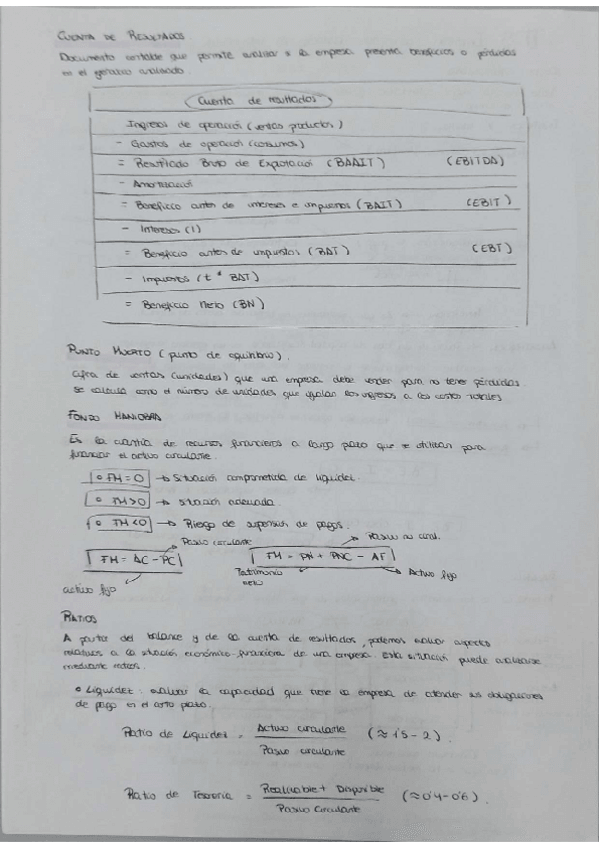 CUENTA DE RESULTADOS.
Documento contable que permite evaluar si la empresa presenta beneficios o pérdidas
en el ejercicio analizado.
Cuenta de resultados
Ingresos de operación (ventas productos)
- Gastos de operación (consumos)
= Resultado Bruto de Explotación (BAAIT) (EBITDA)
- Amortización
= Beneficio antes de intereses e impuestos (BAIT) (EBIT)
- Intereses (I)
= Beneficio antes de impuestos (BAT) (EBT)
- Impuestos (t * BAT)
= Beneficio Neto (BN)
PUNTO MUERTO (punto de equilibrio).
Cifra de ventas (unidades) que una empresa debe vender para no tener pérdidas
se calcula como el número de unidades que igualan los ingresos a los costes totales
FONDO MANIOBRA
Es la cuantía de recursos financieros a largo plazo que se utilizan para
financiar el activo circulante.
• FM = 0 → Situación comprometida de liquidez.
• FM > 0 → Situación adecuada.
• FM < 0 → Riesgo de suspensión de pagos.
Pasivo circulante
Pasivo no circ.
FM = AC - PC
FM = PN + PNC - AF
activo fijo
Patrimonio neto
Activo fijo
RATIOS
A partir del balance y de la cuenta de resultados, podemos evaluar aspectos
relativos a la situación económico-financiera de una empresa. Esta situación puede analizarse
mediante ratios.
• Liquidez: evaluar la capacidad que tiene la empresa de atender sus obligaciones
de pago en el corto plazo.
Ratio de Liquidez = Activo circulante / Pasivo circulante (≈ 1'5 - 2).
Ratio de Tesorería = Realizable + Disponible / Pasivo Circulante (≈ 0'4 - 0'6).